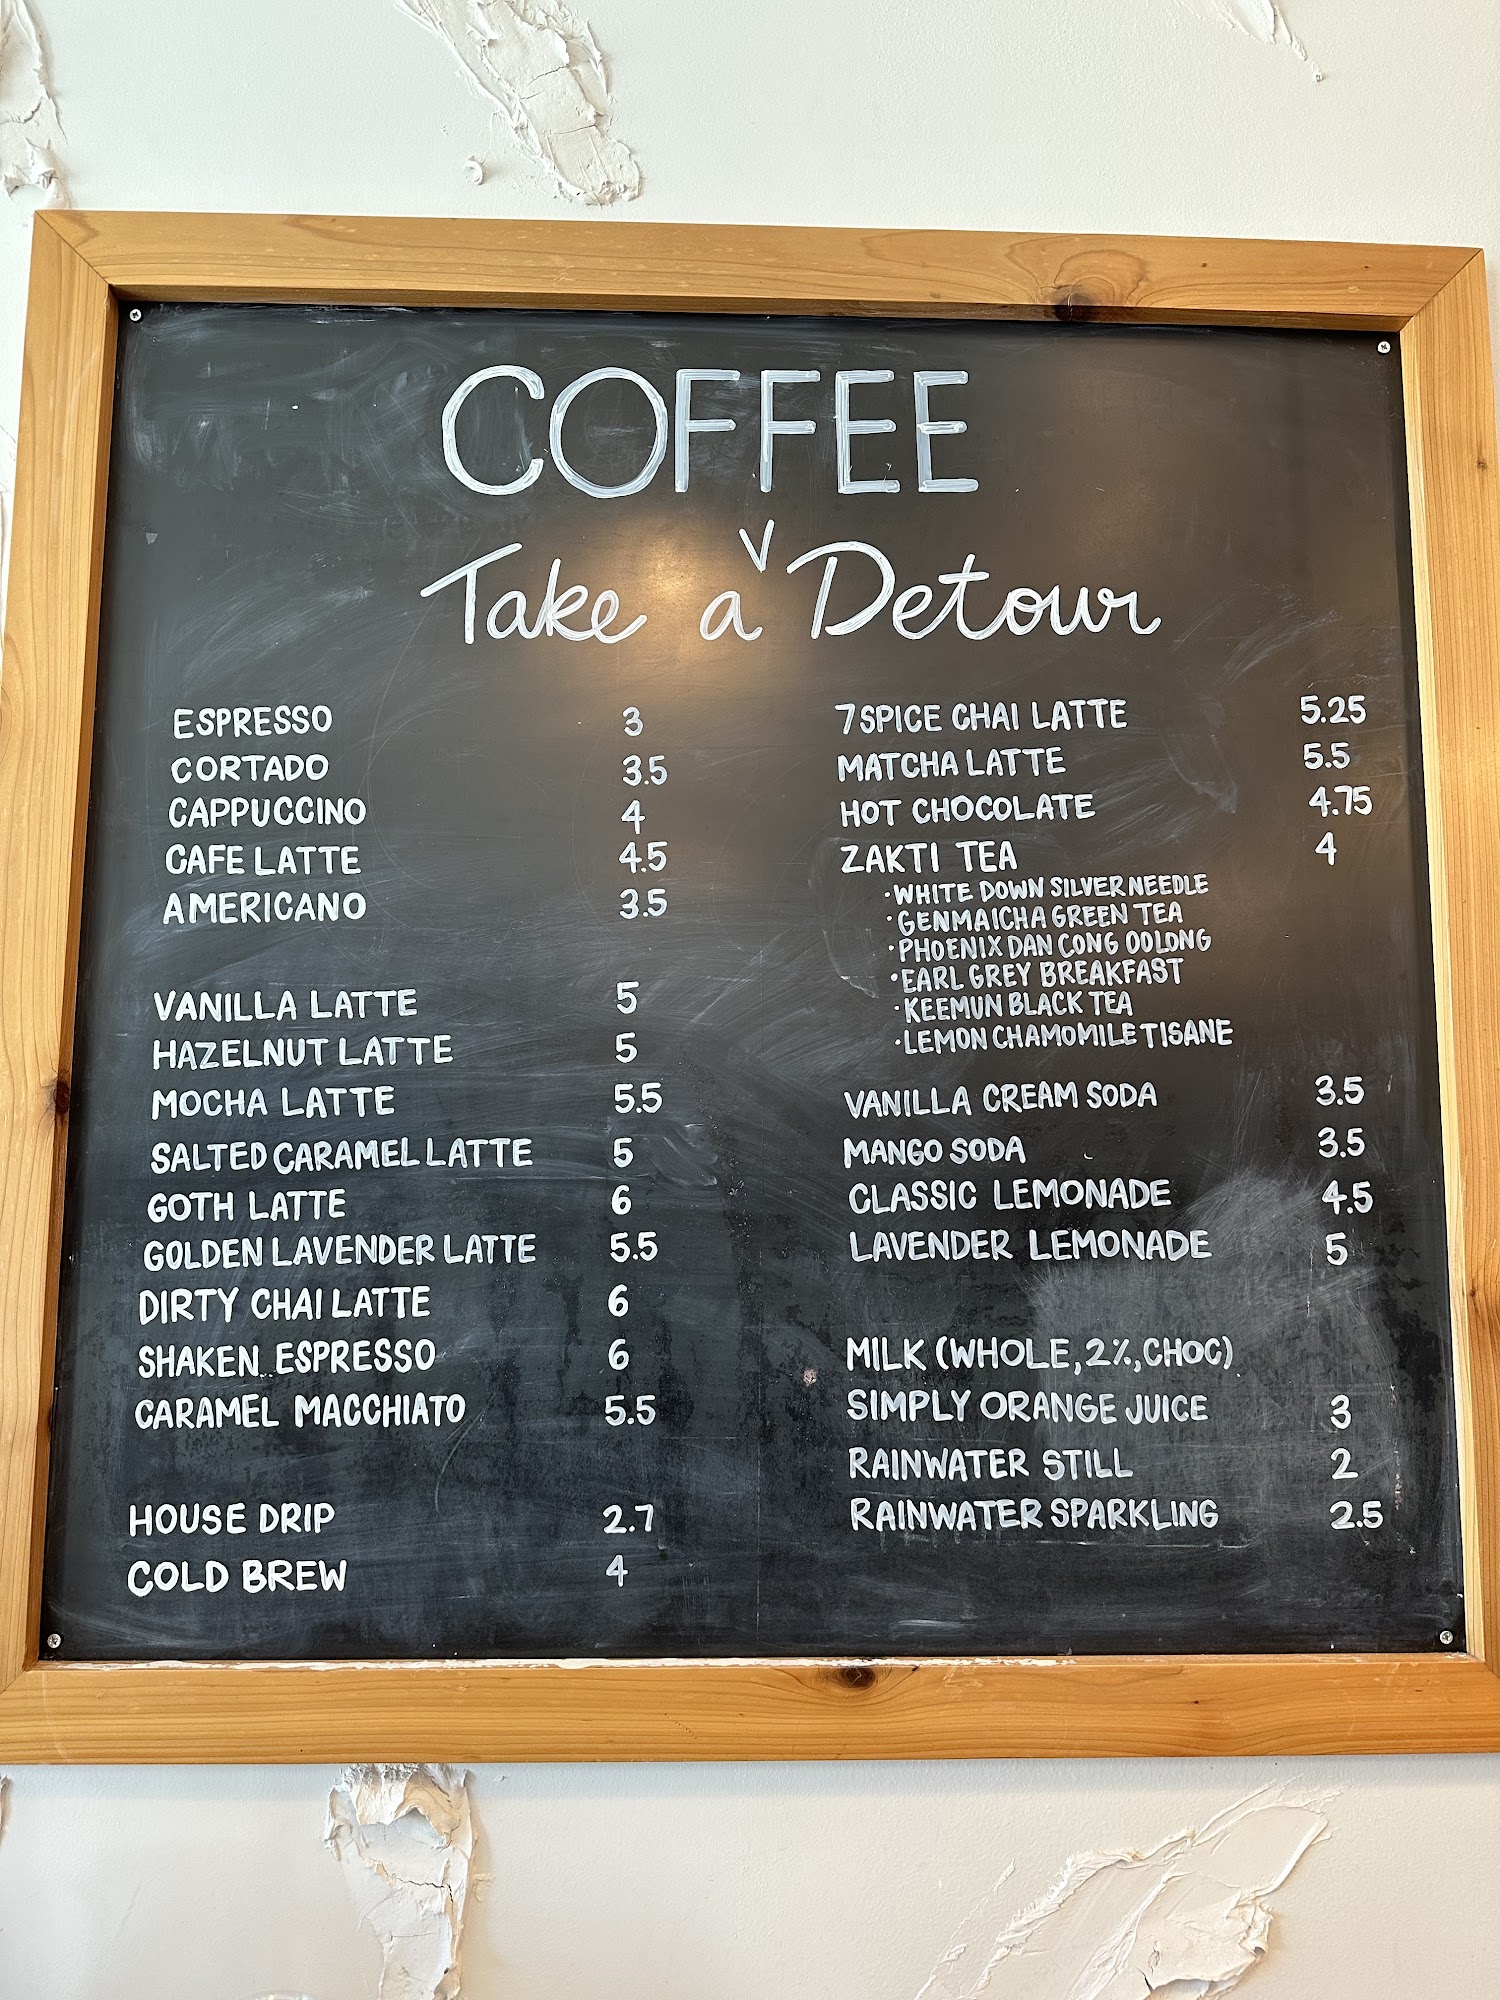 COFFEE
Take a Detour
ESPRESSO 3
CORTADO 3.5
CAPPUCCINO 4
CAFE LATTE 4.5
AMERICANO 3.5
VANILLA LATTE 5
HAZELNUT LATTE 5
MOCHA LATTE 5.5
SALTED CARAMEL LATTE 5
GOTH LATTE 6
GOLDEN LAVENDER LATTE 5.5
DIRTY CHAI LATTE 6
SHAKEN ESPRESSO 6
CARAMEL MACCHIATO 5.5
HOUSE DRIP 2.7
COLD BREW 4
7 SPICE CHAI LATTE 5.25
MATCHA LATTE 5.5
HOT CHOCOLATE 4.75
ZAKTI TEA 4
· WHITE DOWN SILVER NEEDLE
· GENMAICHA GREEN TEA
· PHOENIX DAN CONG OOLONG
· EARL GREY BREAKFAST
· KEEMUN BLACK TEA
· LEMON CHAMOMILE TISANE
VANILLA CREAM SODA 3.5
MANGO SODA 3.5
CLASSIC LEMONADE 4.5
LAVENDER LEMONADE 5
MILK (WHOLE, 2%, CHOC)
SIMPLY ORANGE JUICE 3
RAINWATER STILL 2
RAINWATER SPARKLING 2.5